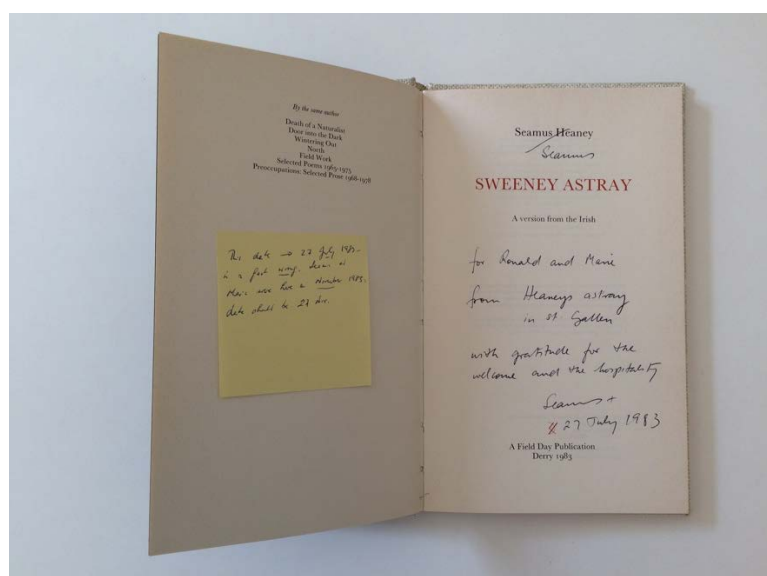 By the same author
Death of a Naturalist
Door into the Dark
Wintering Out
North
Field Work
Selected Poems 1965-1975
Preoccupations: Selected Prose 1968-1978
This date → 27 July 1983
is a wrong. Seamus
Marie were here in November 1983.
date should be 27
Seamus Heaney
Seamus
SWEENEY ASTRAY
A version from the Irish
for Ronald and Marie
from Heaneys astray
in St. Gallen
with gratitude for the
welcome and the hospitality
Seamus +
27 July 1983
A Field Day Publication
Derry 1983